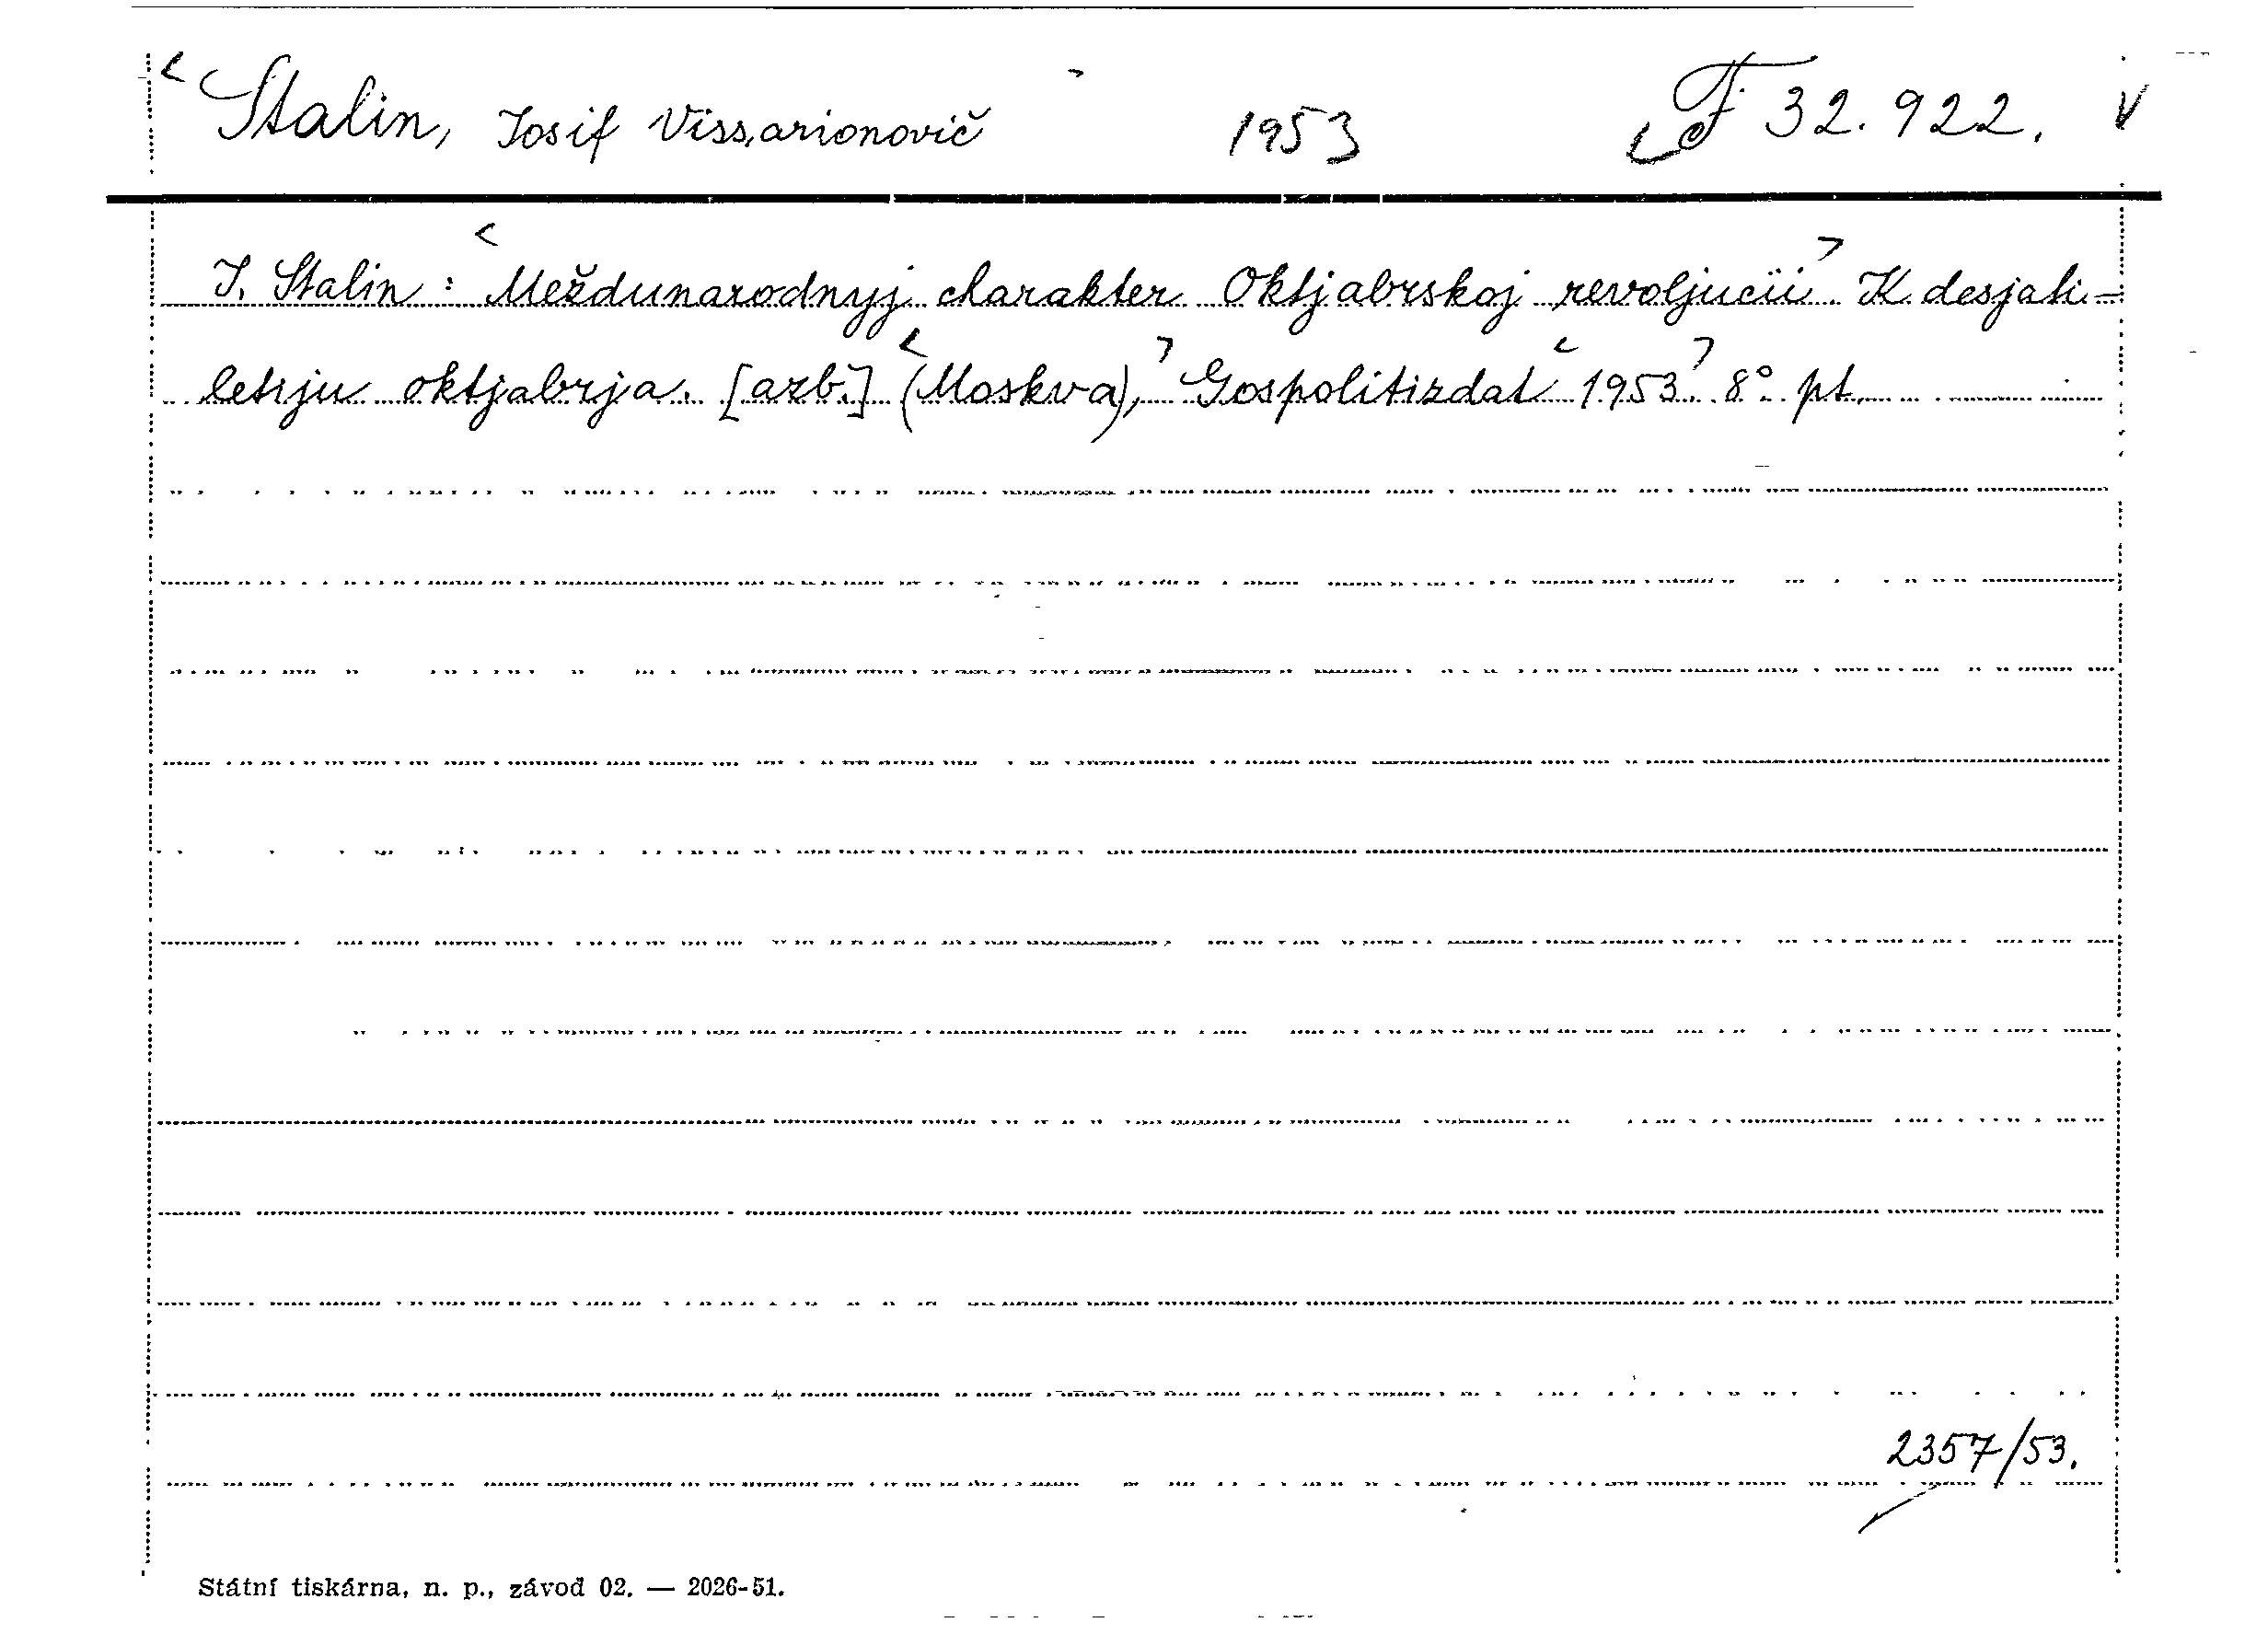 Stalin, Iosif Vissarionovič 1953 F 32.922. V
J. Stalin: Meždunarodnyj charakter Oktjabrskoj revoljucii K desjati-
letiju oktjabrja. [azb.] (Moskva), Gospolitizdat 1953 8° pt.
2357/53.
Státní tiskárna, n. p., závod 02. — 2026-51.